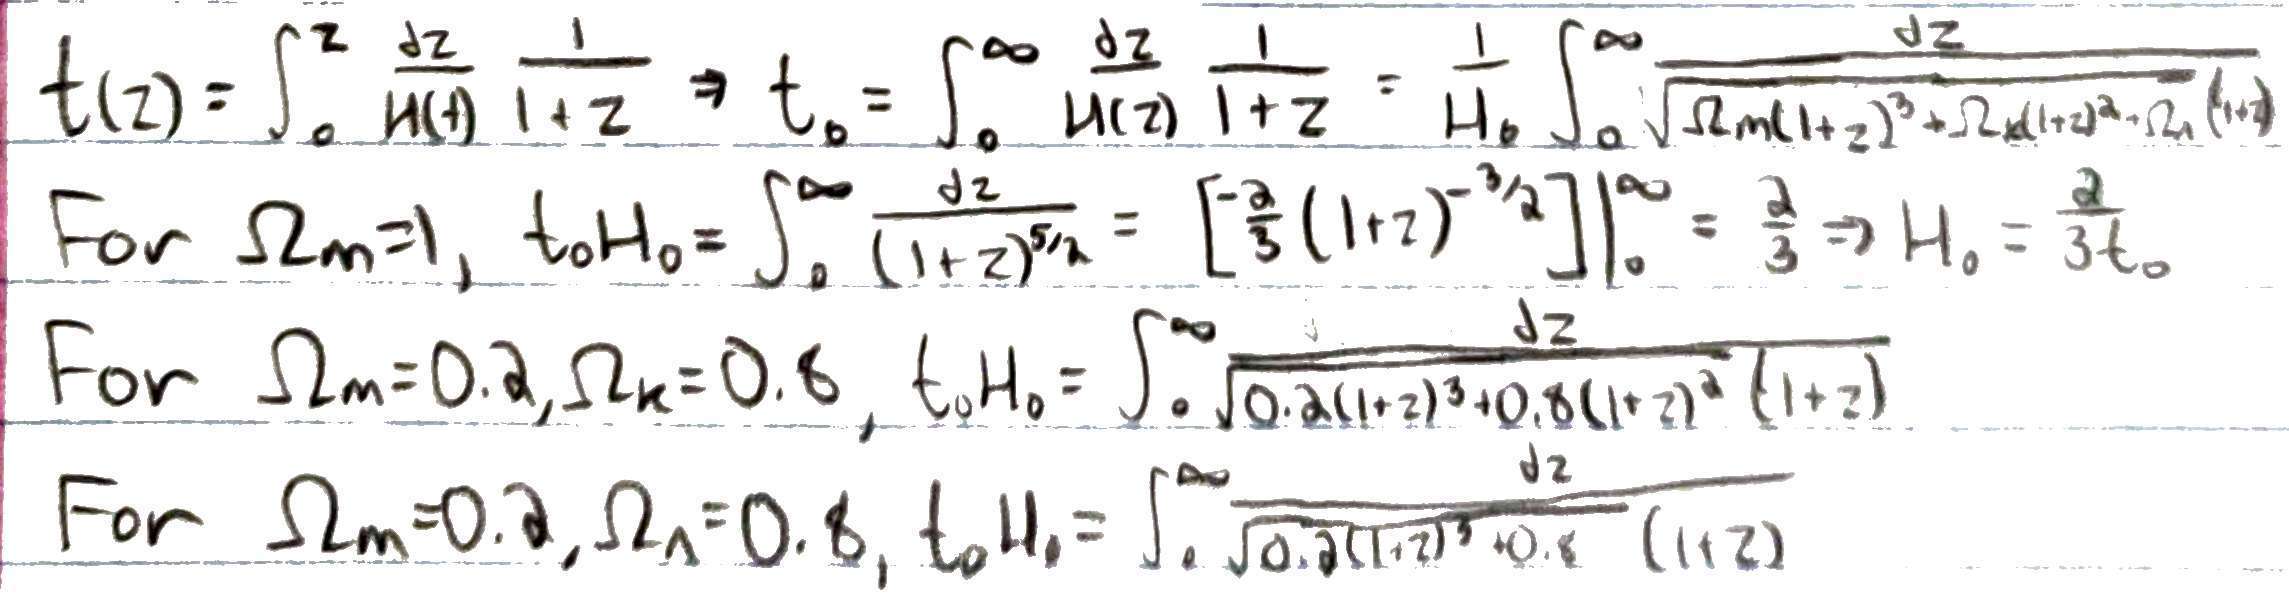 t(z) = ∫₀ᶻ dz/H(t) 1/(1+z) ⇒ t₀ = ∫₀^∞ dz/H(z) 1/(1+z) = 1/H₀ ∫₀^∞ dz/(√(Ωm(1+z)³+Ωk(1+z)²+ΩΛ) (1+z))
For Ωm=1, t₀H₀ = ∫₀^∞ dz/(1+z)^(5/2) = [-2/3 (1+z)^(-3/2)]|₀^∞ = 2/3 ⇒ H₀ = 2/(3t₀)
For Ωm=0.2, Ωk=0.8, t₀H₀ = ∫₀^∞ dz/(√(0.2(1+z)³+0.8(1+z)²) (1+z))
For Ωm=0.2, ΩΛ=0.8, t₀H₀ = ∫₀^∞ dz/(√(0.2(1+z)³+0.8) (1+z))